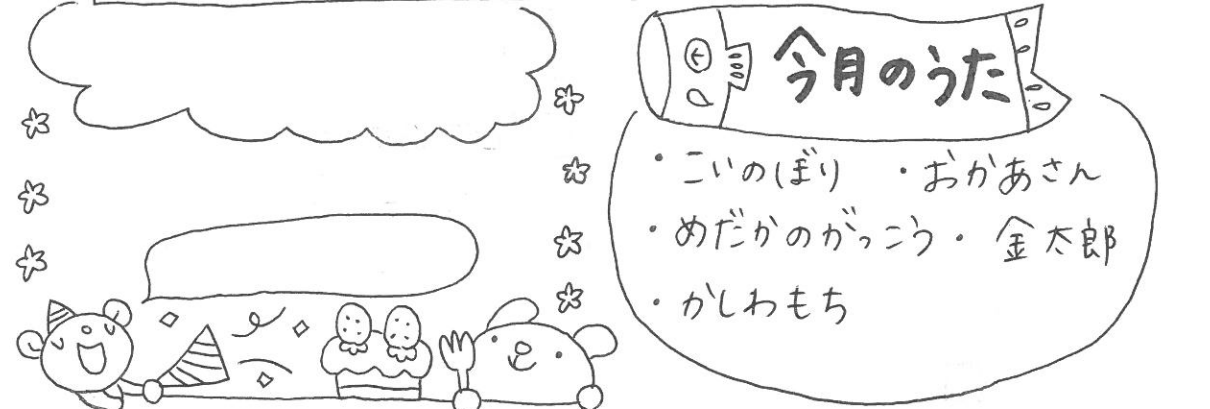 今月のうた
・こいのぼり ・おかあさん
・めだかのがっこう ・金太郎
・かしわもち